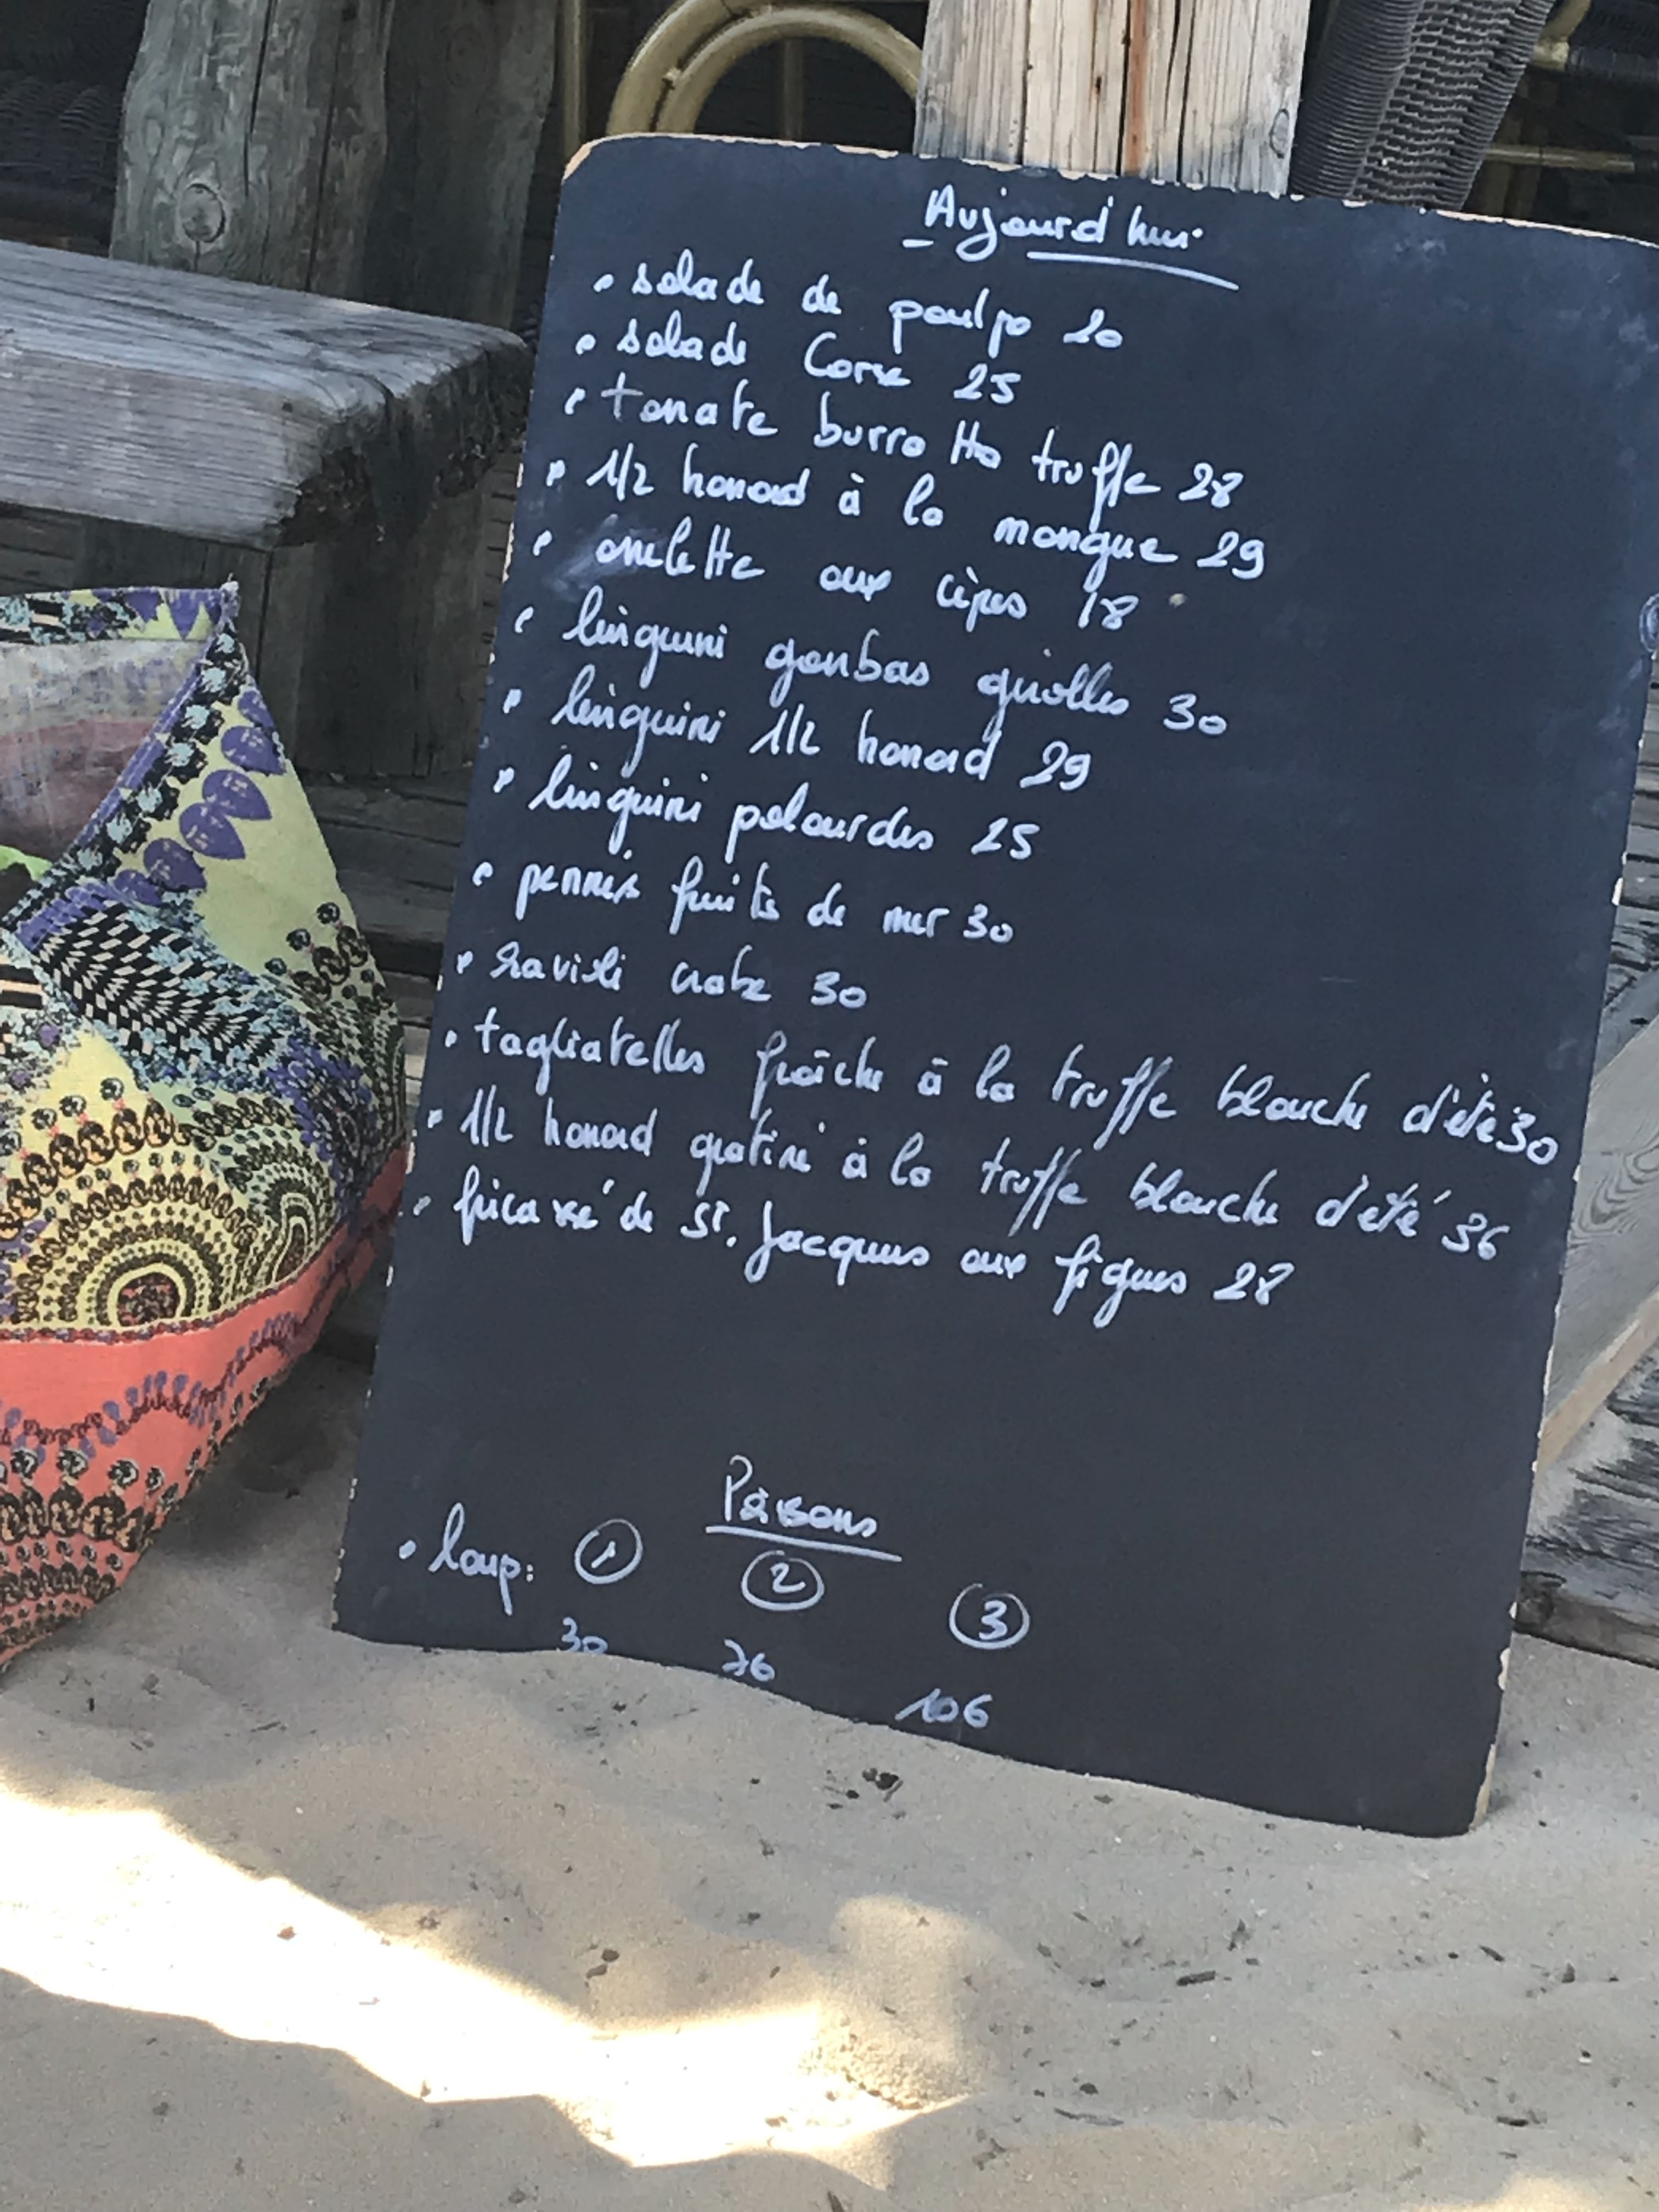 Aujourd'hui
• salade de poulpe 20
• salade Corse 25
• tomate burratta truffe 28
• 1/2 homard à la mangue 29
• omelette aux cèpes 18
• linguini gambas girolles 30
• linguini 1/2 homard 29
• linguini palourdes 25
• pennes fruits de mer 30
• ravioli crabe 30
• tagliatelles fraîche à la truffe blanche d'été 30
• 1/2 homard gratiné à la truffe blanche d'été 36
• fricassé de St. Jacques aux figues 28
Poissons
• loup: 1 2 3
30 76 106